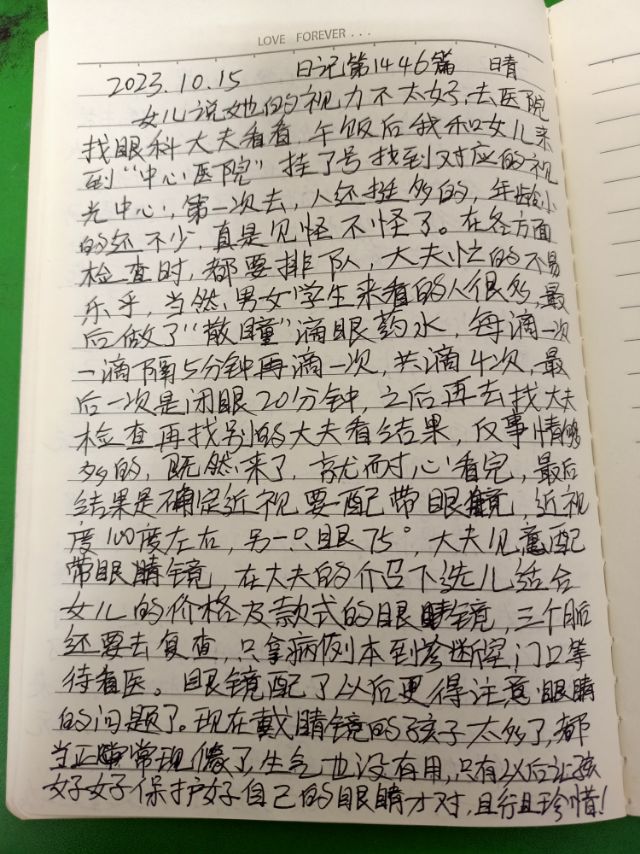 LOVE FOREVER...
2023.10.15 日记第1446篇 晴
女儿说她的视力不太好,去医院
找眼科大夫看看,午饭后我和女儿来
到“中心医院”挂了号找到对应的视
光中心,第一次去,人还挺多的,年龄小
的还不少,真是见怪不怪了。在各方面
检查时,都要排队,大夫忙的不易
乐乎,当然,男女学生来看的人很多,最
后做了“散瞳”滴眼药水,每滴一次
一滴隔5分钟再滴一次,共滴4次,最
后一次是闭眼20分钟,之后再去找大夫
检查再找别的大夫看结果,仅事情够
多的,既然来了,就耐心看完,最后
结果是确定近视要配带眼镜,近视
度100度左右,另一只眼75°,大夫见意配
带眼睛镜,在大夫的介召下选儿适合
女儿的价格及款式的眼睛镜,三个月后
还要去复查,只拿病例本到诊断室门口等
待看医。眼镜配了以后更得注意眼睛
的问题了。现在戴睛镜的孩子太多了,都
当正常现像了,生气也没有用,只有以后让孩
好好保护好自己的眼睛才对,且行且珍惜!